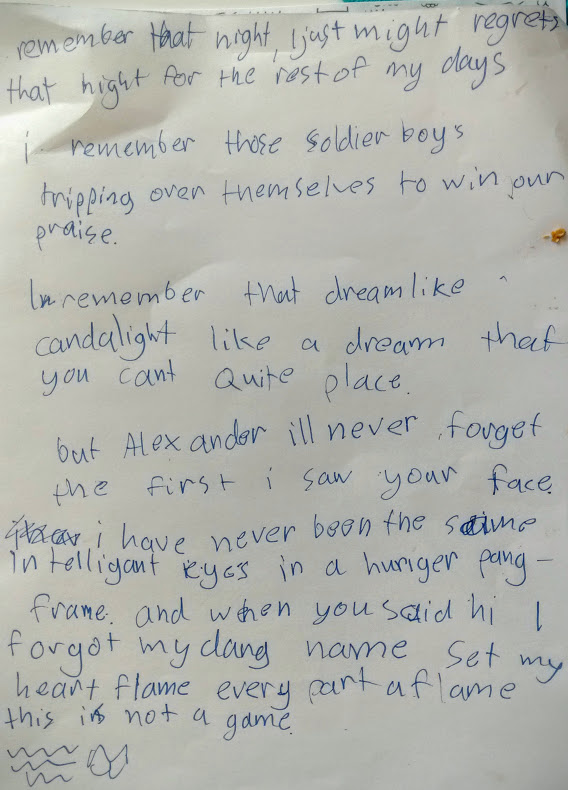 remember that night, I just might regrets
that night for the rest of my days
i remember those soldier boys
tripping over themselves to win our
praise.
In remember that dreamlike
candalight like a dream that
you cant Quite place.
but Alexander ill never forget
the first i saw your face.
i have never been the same
Intelligant eyes in a hunger pang-
frame. and when you said hi I
forgot my dang name Set my
heart flame every part aflame
this is not a game.